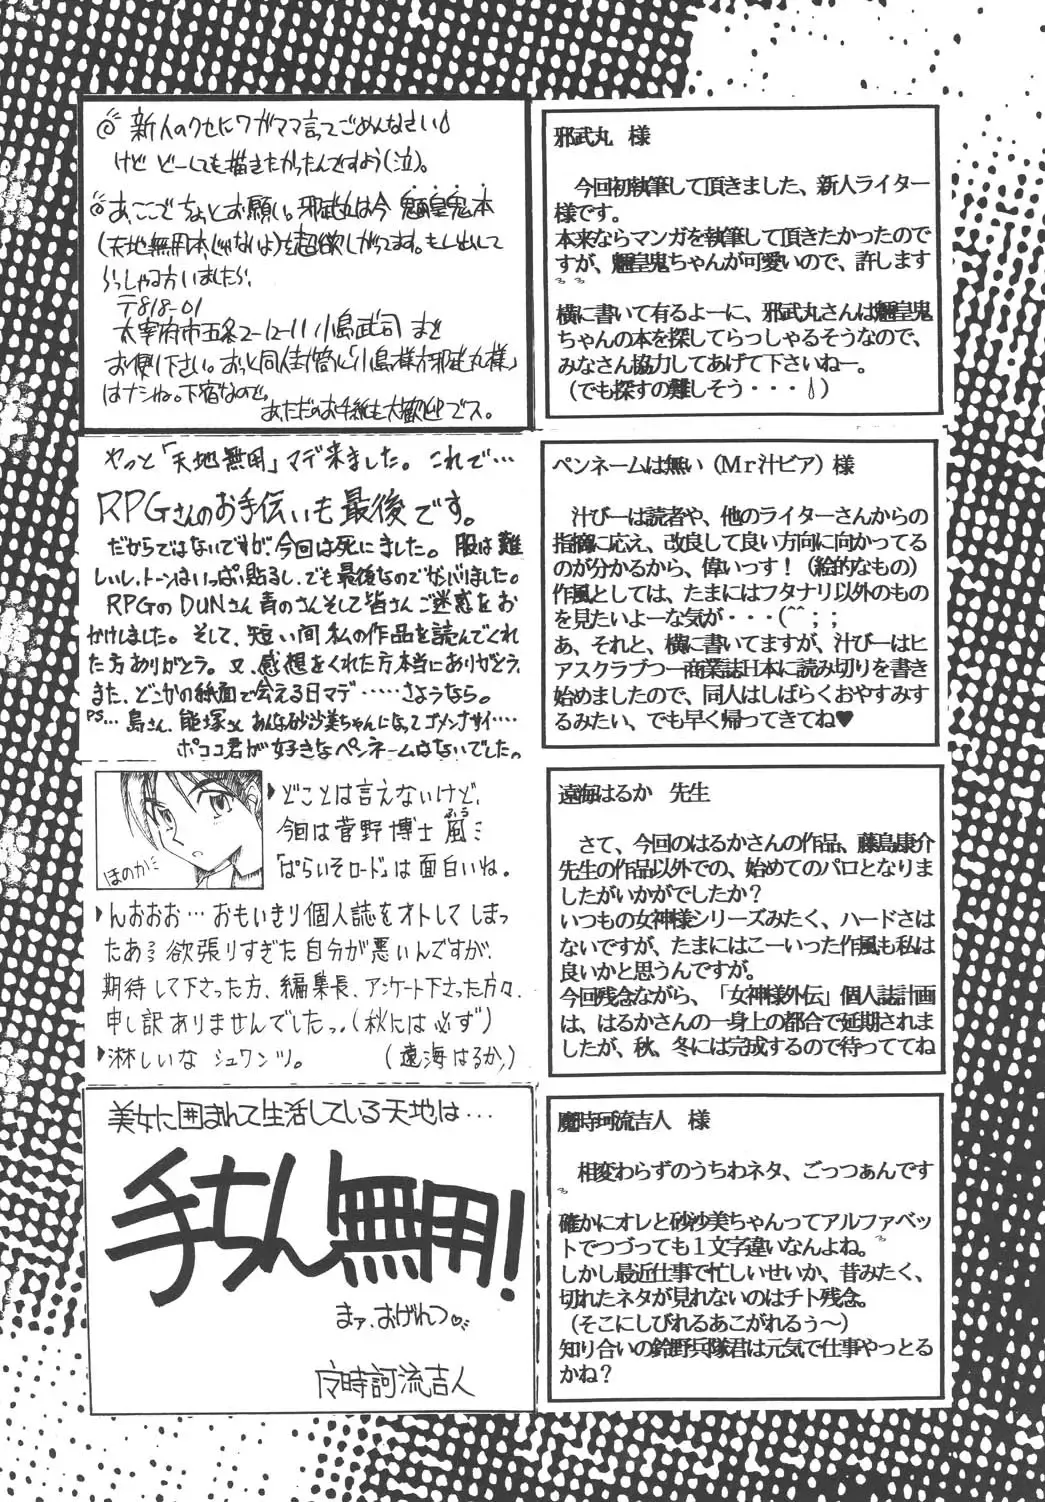 新人のクセにワガママ言ってごめんなさい
けど どーしても描きたかったんですよう(泣)。
あ、ここでちょっとお願い。邪武丸は今 魎皇鬼本
(天地無用本じゃないよ)を超欲しがってます。もし出して
らっしゃる方いましたら、
〒818-01
太宰府市五条2-12-11 小島武司 まで
お便り下さい。おっと同人封筒に「小島様方邪武丸様」
はナシね。下宿なので。
あ、ただのお手紙も大歓迎でス。
邪武丸 様
今回初執筆して頂きました、新人ライター
様です。
本来ならマンガを執筆して頂きたかったので
すが、魎皇鬼ちゃんが可愛いので、許します
横に書いて有るよーに、邪武丸さんは魎皇鬼
ちゃんの本を探してらっしゃるそうなので、
みなさん協力してあげて下さいねー。
(でも探すの難しそう・・・)
やっと「天地無用」マデ来ました。これで…
RPGさんのお手伝いも最後です。
だからではないですが今回は死にました。服は難
しいし、トーンはいっぱい貼るし、でも最後なのでガンバりました。
RPGのDUNさん青のさんそして皆さんご迷惑をお
かけしました。そして、短い間私の作品を読んでくれ
た方ありがとう。又、感想をくれた方本当にありがとう。
また、どこかの紙面で会える日マデ……さようなら。
PS… 島さん、熊塚さん あんな砂沙美ちゃんになってゴメンナサイ….
ポココ君が好きなペンネームはないでした。
ペンネームは無い(Mr汁ビア)様
汁びーは読者や、他のライターさんからの
指摘に応え、改良して良い方向に向かってる
のが分かるから、偉いっす!(絵的なもの)
作風としては、たまにはフタナリ以外のもの
を見たいよーな気が・・・(^^;;
あ、それと、横に書いてますが、汁びーはヒ
アスクラブつー商業誌日本に読み切りを書き
始めましたので、同人はしばらくおやすみす
るみたい、でも早く帰ってきてね♥
ほのか
どことは言えないけど、
今回は菅野博士風ミ
ふう
「ぱらいそロード」は面白いね。
んおおお…おもいきり個人誌をオトしてしまっ
たあ 欲張りすぎた自分が悪いんですが、
期待して下さった方、編集長、アンケート下さった方々、
申し訳ありませんでしたっ。(秋には必ず)
淋しいな シュワンツ。 (遠海はるか)
遠海はるか 先生
さて、今回のはるかさんの作品、藤島康介
先生の作品以外での、始めてのパロとなりま
したがいかがでしたか?
いつもの女神様シリーズみたく、ハードさは
ないですが、たまにはこーいった作風も私は
良いかと思うんですが。
今回残念ながら、「女神様外伝」個人誌計画
は、はるかさんの一身上の都合で延期されま
したが、秋、冬には完成するので待っててね
美女に囲まれて生活している天地は…
手ちん無用!
まァ、おげれつ♡
魔時訶流吉人
魔時珂流吉人 様
相変わらずのうちわネタ、ごっつぁんです
確かにオレと砂沙美ちゃんってアルファベッ
トでつづっても1文字違いなんよね。
しかし最近仕事で忙しいせいか、昔みたく、
切れたネタが見れないのはチト残念。
(そこにしびれるあこがれるぅ〜)
知り合いの鈴野兵隊君は元気で仕事やっとる
かね?